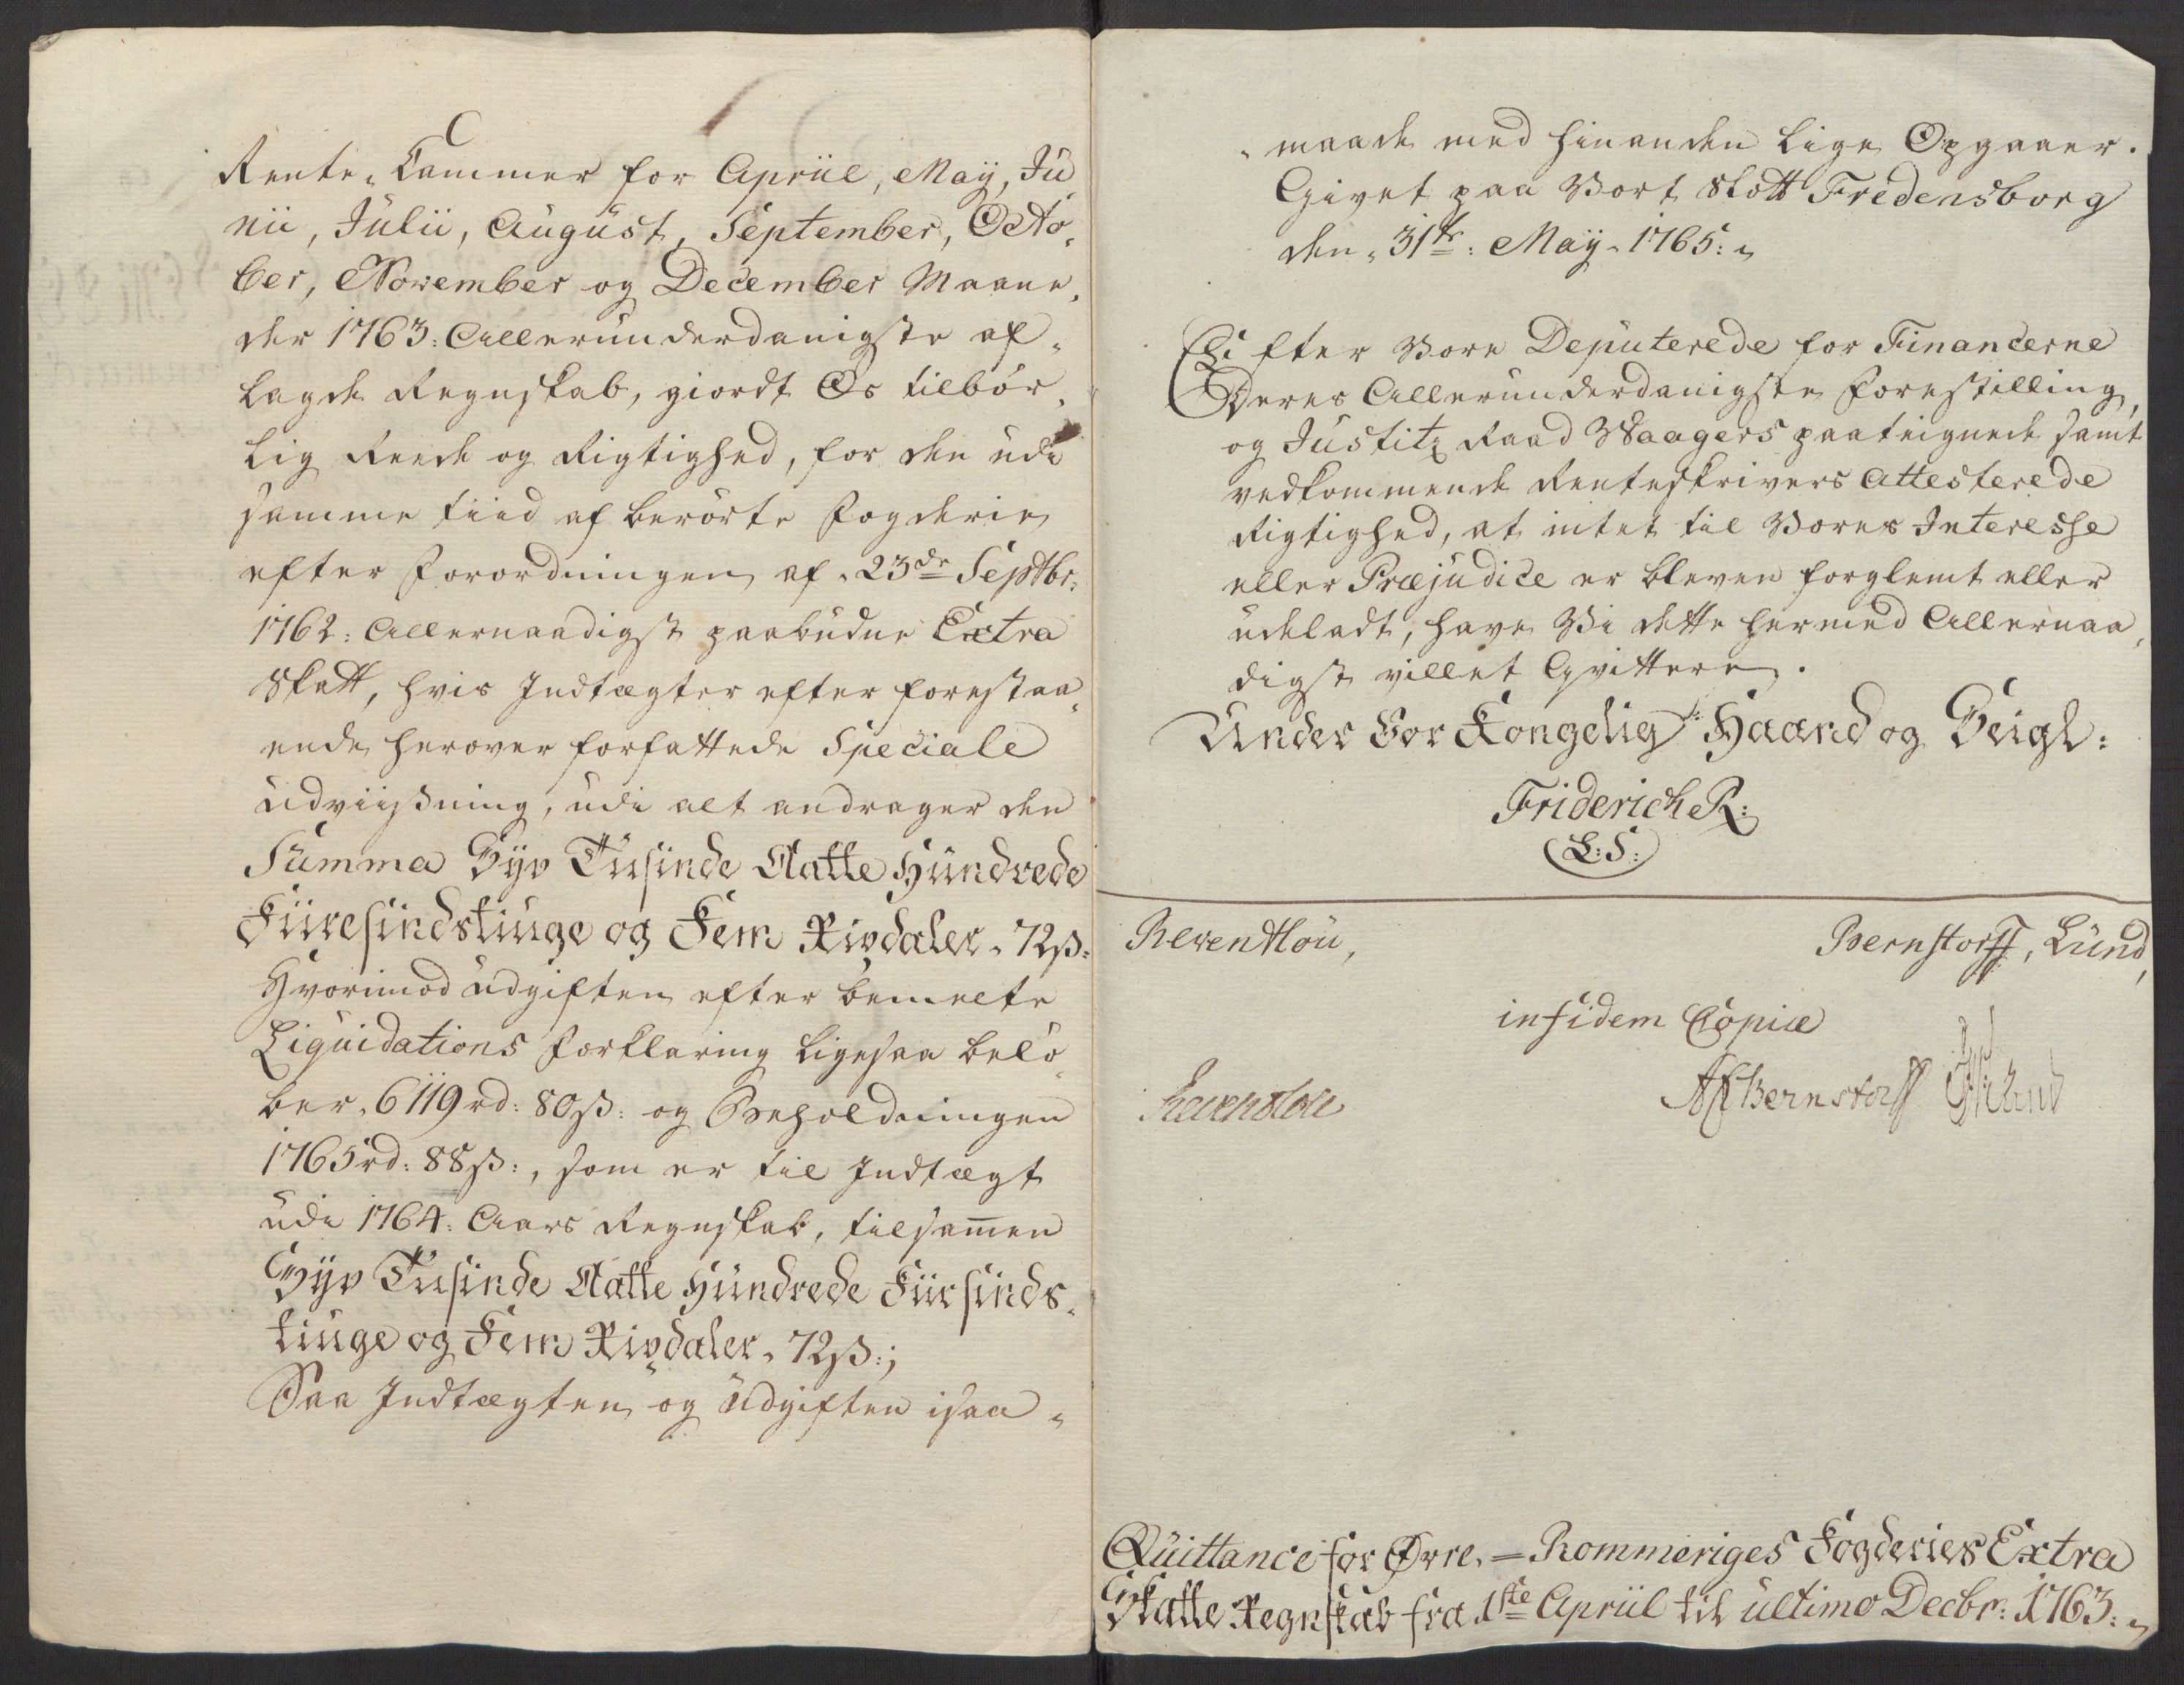 Rente-Cammer for Apriil, Maÿ, Ju-
nii, Julii, August, September, Octo-
ber, November og December Maane-
der 1763: Allerunderdanigste af-
lagde Regnskab, giordt Os tilbør-
lig Reede og Rigtighed, for den udi
samme tiid af berørte Fogderie
efter Forordningen af 23de Septbr:
1762: Allernaadigst paabudne Extra
Skatt, hvis Indtægter efter forestaa-
ende herover forfattede Speciale
Udviisning, udi alt andrager den
Summa Syv Tusinde Aatte Hundrede
Fiiresindstiuge og Fem Rixdaler 72 ß:
Hvorimod Udgiften efter bemelte
Liquidations Forklaring ligesaa belø-
ber 6119 rd: 80 ß: og Beholdningen
1765 rd: 88 ß:, som er til Indtægt
udi 1764: Aars Regnskab, tilsam̄en
Syv Tusinde Aatte Hundrede Fiirsinds-
tiuge og Fem Rixdaler 72 ß:;
Saa Indtægten og Udgiften isaa-
-maade med hinanden lige Opgaaer.
Givet paa Vort Slott Fredensborg
den 31te: Maÿ 1765:
Efter Vore Deputerede for Financerne
Deres Allerunderdanigste Forestilling,
og Justitz Raad Waagers paateignede samt
vedkommende Renteskrivers Attesterede
Rigtighed, at intet til Vores Interesse
eller Præjudice er bleven forglemt eller
udeladt, have Vi dette hermed Allernaa-
digst villet Qvittere.
Under Vor Kongelig: Haand og Seigl:
Friderich R:
(L:S:)
Reventlou,
Bernstorff, Lund,
in fidem Copiæ
Reventlou
Bernstorff Lund
Quittance for Øvre-Rommeriges Fogderies Extra
Skatte Regnskab fra 1ste Apriil til ultimo Decbr: 1763: